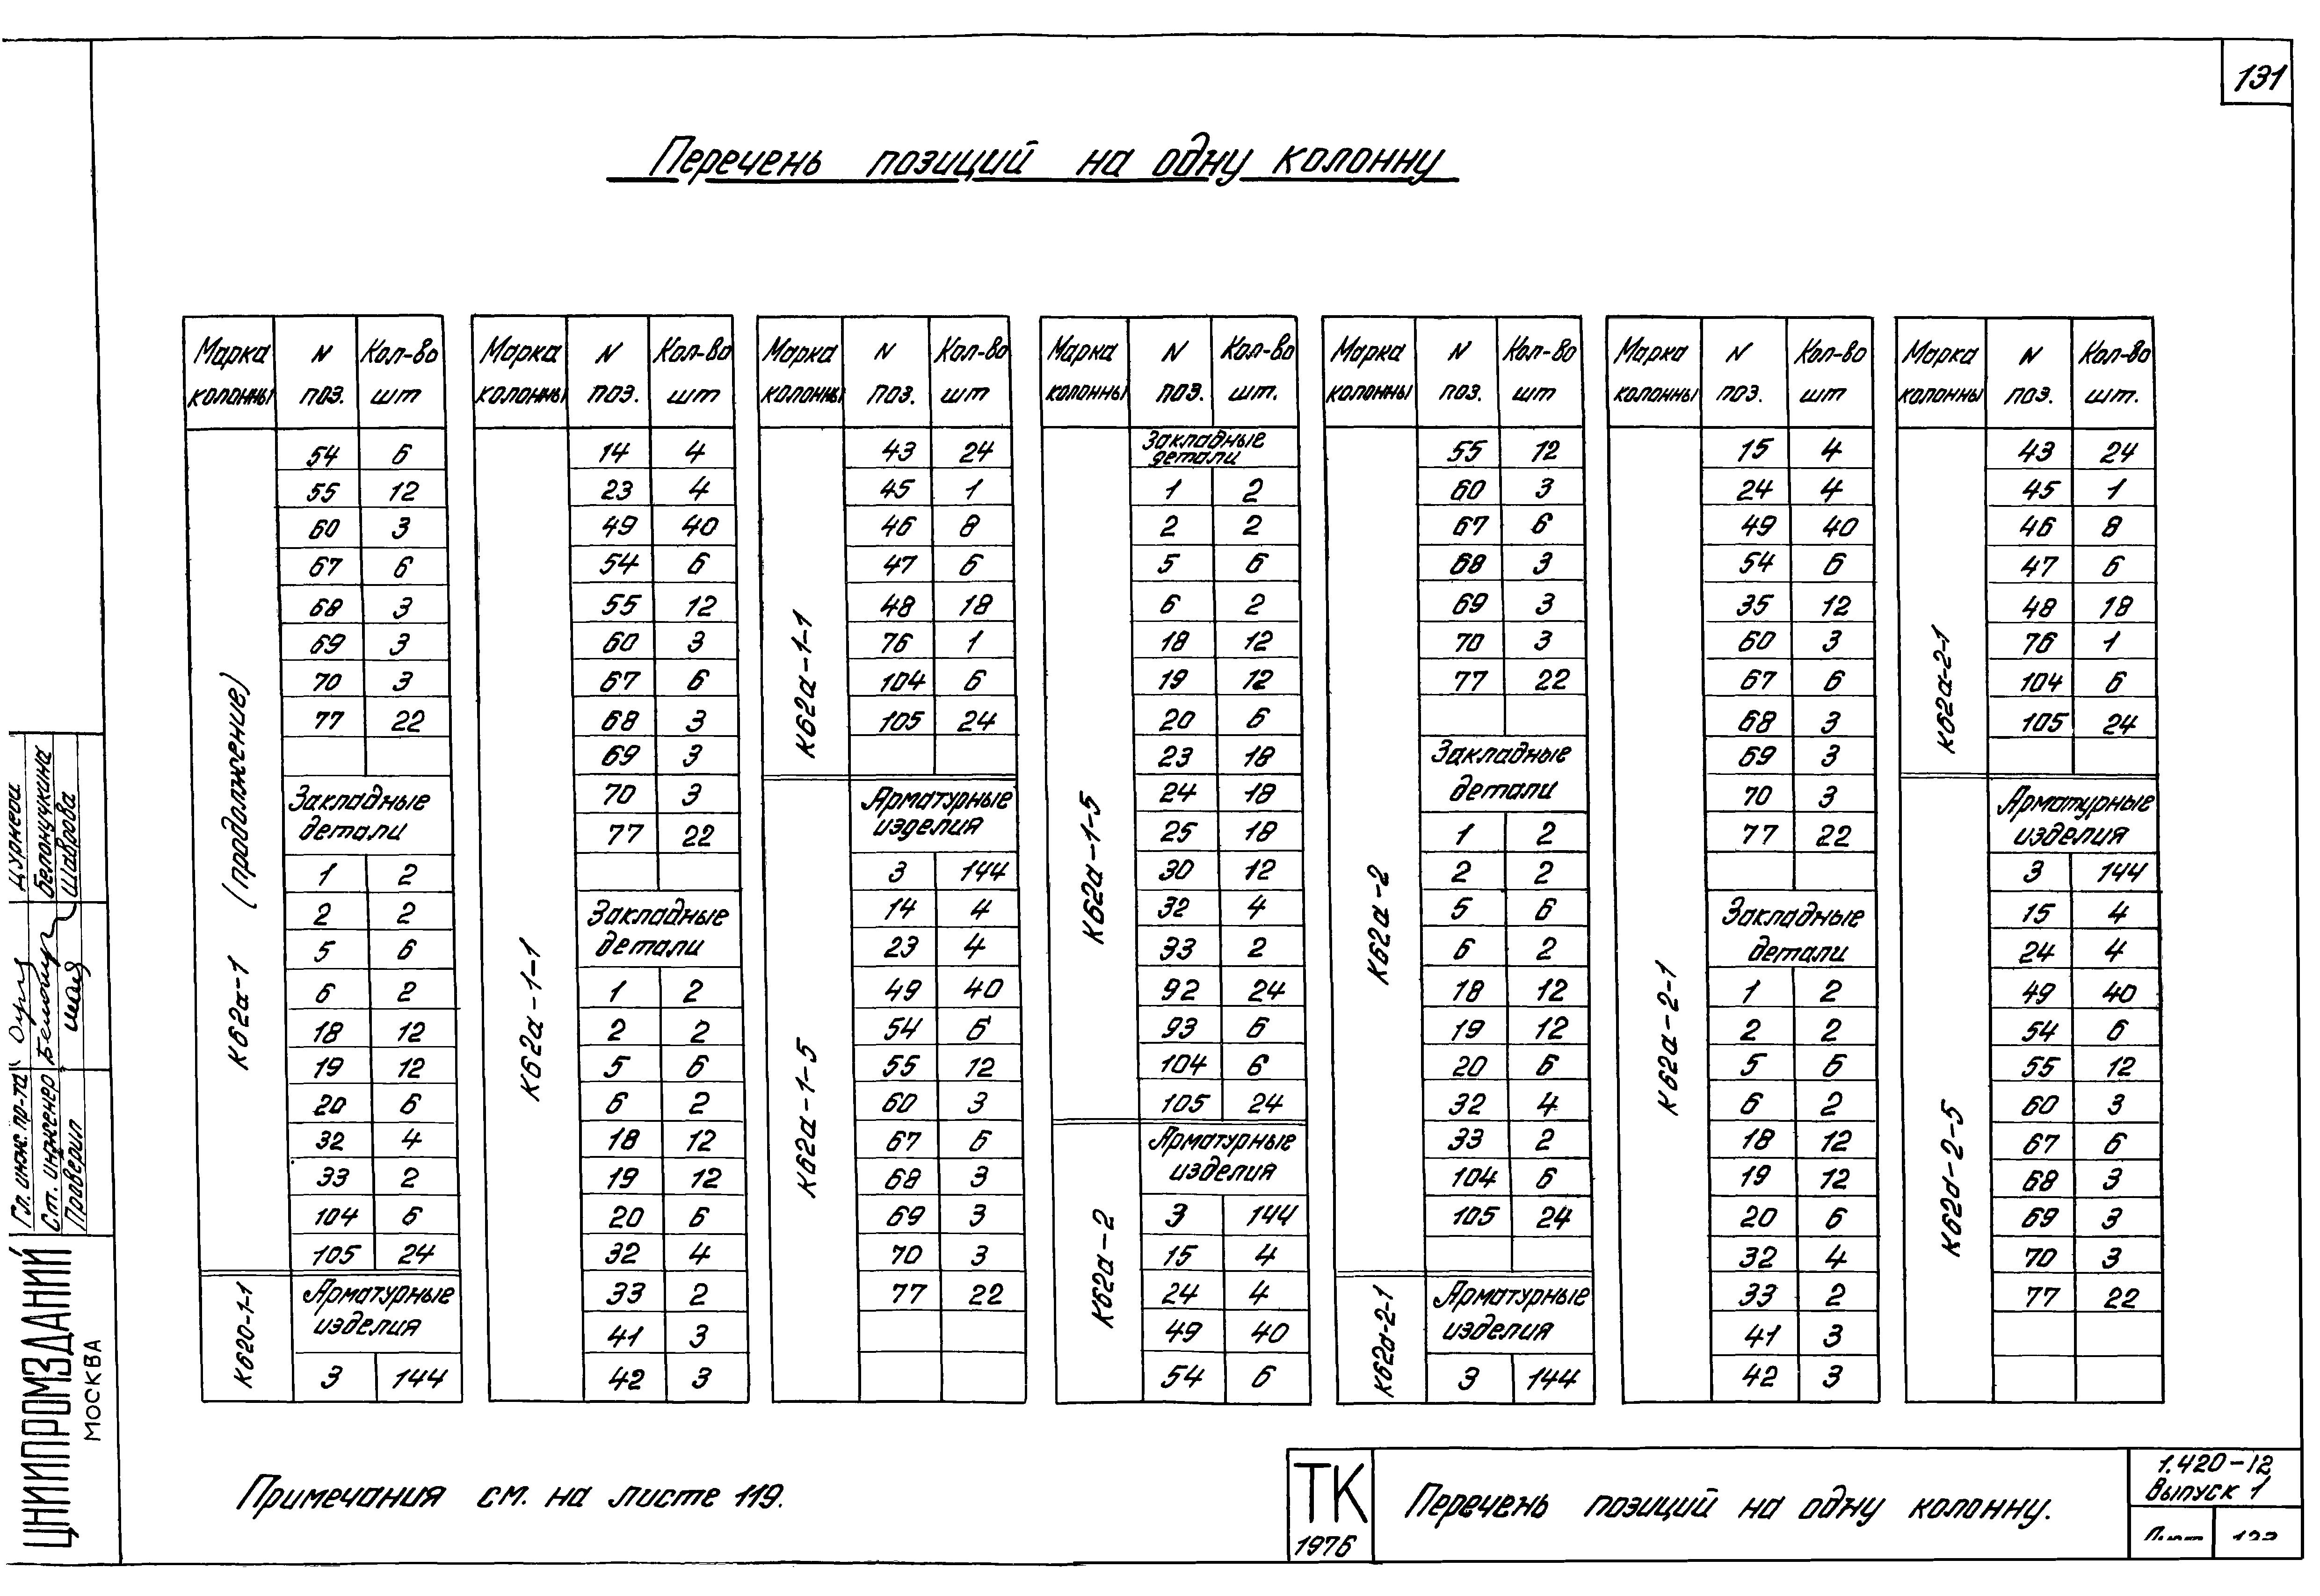 131
Перечень позиций на одну колонну
Марка колонны | N поз. | Кол-во шт
К62а-1 (продолжение)
54 6
55 12
60 3
67 6
68 3
69 3
70 3
77 22
Закладные
детали
1 2
2 2
5 6
6 2
18 12
19 12
20 6
32 4
33 2
104 6
105 24
К620-1-1
Арматурные
изделия
3 144
Марка колонны | N поз. | Кол-во шт
К62а-1-1
14 4
23 4
49 40
54 6
55 12
60 3
67 6
68 3
69 3
70 3
77 22
Закладные
детали
1 2
2 2
5 6
6 2
18 12
19 12
20 6
32 4
33 2
41 3
42 3
Марка колонны | N поз. | Кол-во шт
К62а-1-1
43 24
45 1
46 8
47 6
48 18
76 1
104 6
105 24
К62а-1-5
Арматурные
изделия
3 144
14 4
23 4
49 40
54 6
55 12
60 3
67 6
68 3
69 3
70 3
77 22
Марка колонны | N поз. | Кол-во шт.
К62а-1-5
Закладные
детали
1 2
2 2
5 6
6 2
18 12
19 12
20 6
23 18
24 18
25 18
30 12
32 4
33 2
92 24
93 6
104 6
105 24
К62а-2
Арматурные
изделия
3 144
15 4
24 4
49 40
54 6
Марка колонны | N поз. | Кол-во шт
К62а-2
55 12
60 3
67 6
68 3
69 3
70 3
77 22
Закладные
детали
1 2
2 2
5 6
6 2
18 12
19 12
20 6
32 4
33 2
104 6
105 24
К62а-2-1
Арматурные
изделия
3 144
Марка колонны | N поз. | Кол-во шт
К62а-2-1
15 4
24 4
49 40
54 6
35 12
60 3
67 6
68 3
69 3
70 3
77 22
Закладные
детали
1 2
2 2
5 6
6 2
18 12
19 12
20 6
32 4
33 2
41 3
42 3
Марка колонны | N поз. | Кол-во шт.
К62а-2-1
43 24
45 1
46 8
47 6
48 18
76 1
104 6
105 24
К62а-2-5
Арматурные
изделия
3 144
15 4
24 4
49 40
54 6
55 12
60 3
67 6
68 3
69 3
70 3
77 22
Примечания см. на листе 119.
ТК
1976
Перечень позиций на одну колонну.
1.420-12
Выпуск 1
Лист
ЦНИИПРОМЗДАНИЙ
МОСКВА
Гл. инж. пр-та
Ст. инженер Белокучкина
Проверил Шаврова